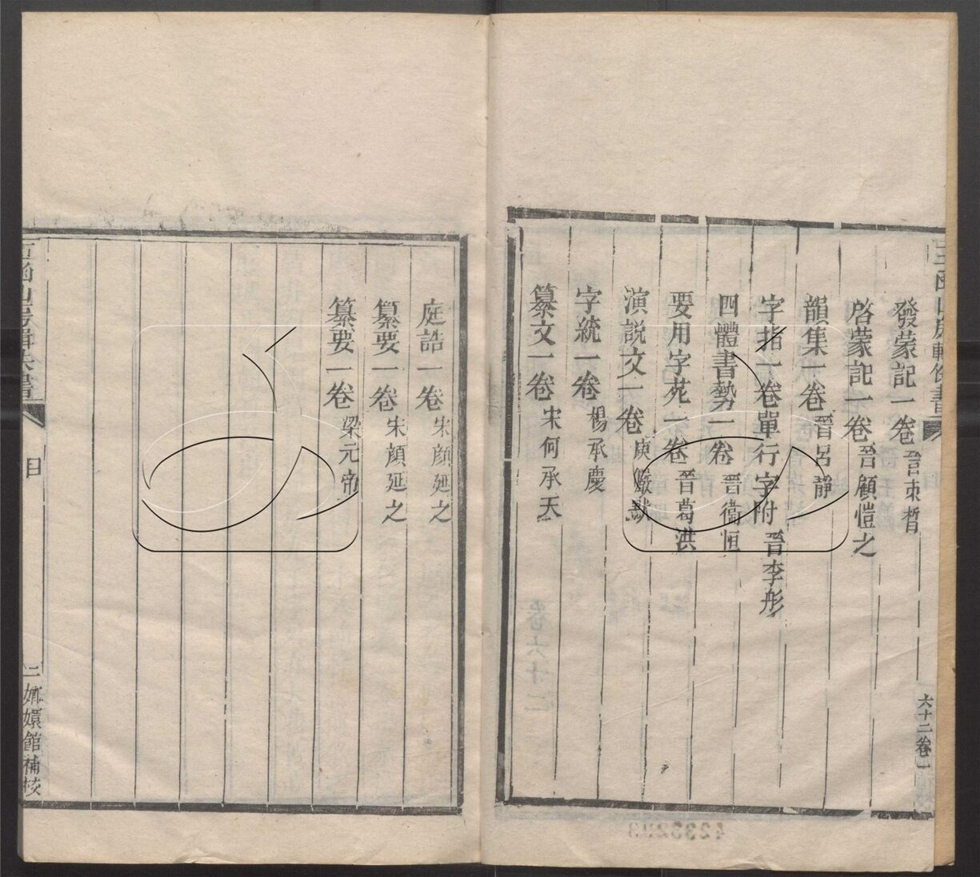 發蒙記一卷 晉束皙
啓蒙記一卷 晉顧愷之
韻集一卷 晉呂靜
字指一卷單行字附 晉李彤
四體書勢一卷 晉衞恒
要用字苑一卷 晉葛洪
演說文一卷 庾儼默
字統一卷 楊承慶
纂文一卷 宋何承天
六十二卷
庭誥一卷 宋顏延之
纂要一卷 宋顏延之
纂要一卷 梁元帝
玉函山房輯佚書 目 二 嫏嬛館補校